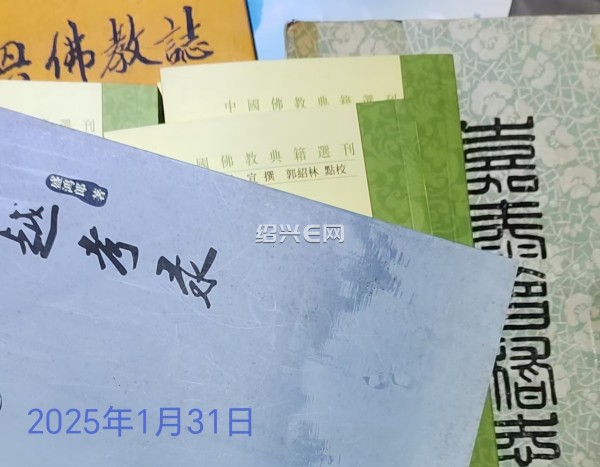 佛教誌
中國佛教典籍選刊
國佛教典籍選刊
宣 撰 郭紹林 點校
嘉泰會稽志
盛鸿郎 著
越考录
绍兴E网
2025年1月31日